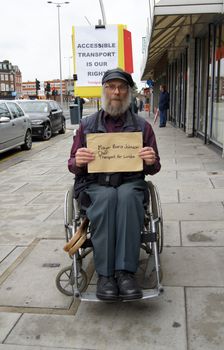 ACCESSIBLE
TRANSPORT
IS OUR
RIGHT
Mayor Boris Johnson
Chair
Transport for London